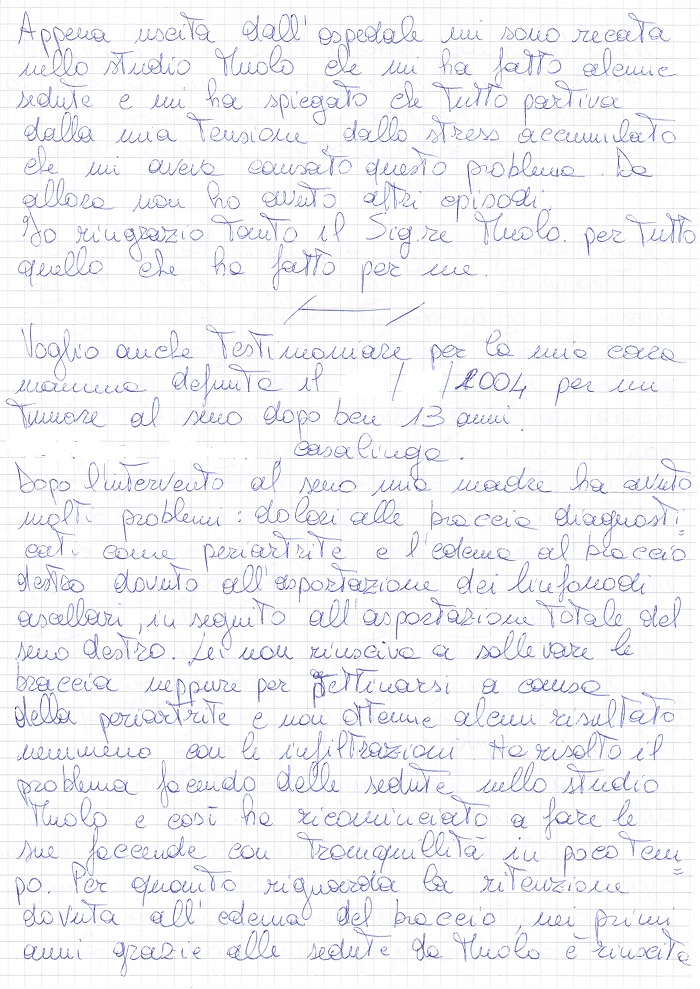 Appena uscita dall'ospedale mi sono recata
nello studio Muolo che mi ha fatto alcune
sedute e mi ha spiegato che tutto partiva
dalla mia tensione, dallo stress accumulato
che mi aveva causato questo problema. Da
allora non ho avuto altri episodi.
Io ringrazio tanto il Sig.re Muolo. per tutto
quello che ha fatto per me.
Voglio anche testimoniare per la mia cara
mamma defunta il / /2004 per un
tumore al seno dopo ben 13 anni.
, casalinga.
Dopo l'intervento al seno mia madre ha avuto
molti problemi: dolori alle braccia diagnosti=
cati come periartrite e l'edema al braccio
destro dovuto all'asportazione dei linfonodi
ascellari, in seguito all'asportazione totale del
seno destro. Lei non riusciva a sollevare le
braccia neppure per pettinarsi a causa
della periartrite e non ottenne alcun risultato
nemmeno con le infiltrazioni. Ha risolto il
problema facendo delle sedute nello studio
Muolo e così ha ricominciato a fare le
sue faccende con tranquillità in poco tem=
po. Per quanto riguarda la ritenzione
dovuta all'edema del braccio, nei primi
anni grazie alle sedute da Muolo è riuscita